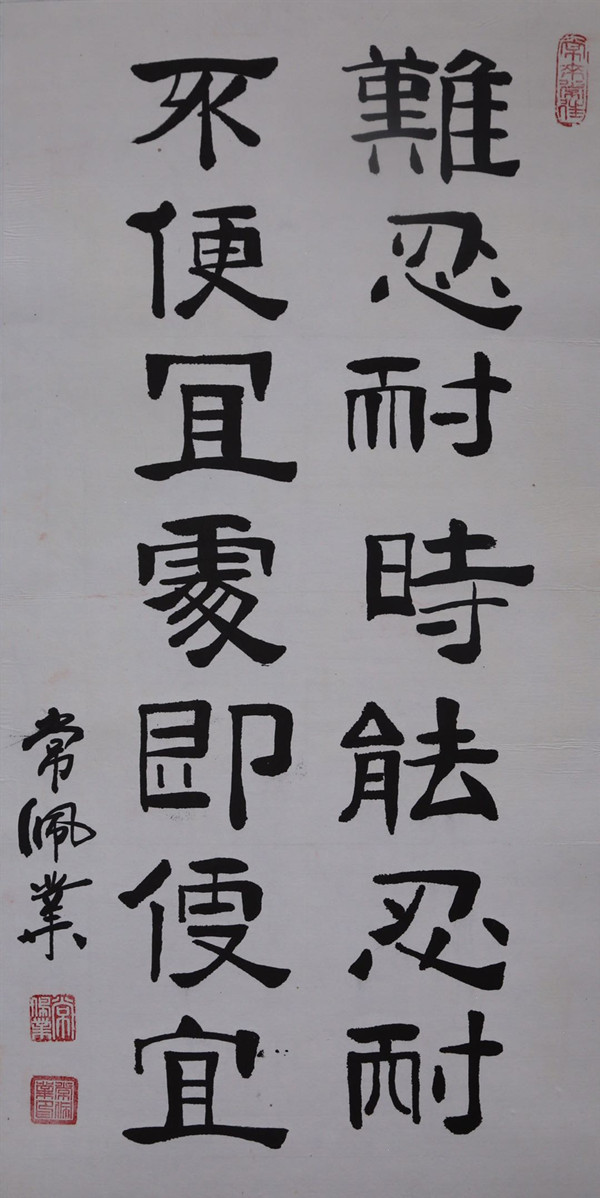 難忍耐時能忍耐
不便宜處即便宜
常佩業